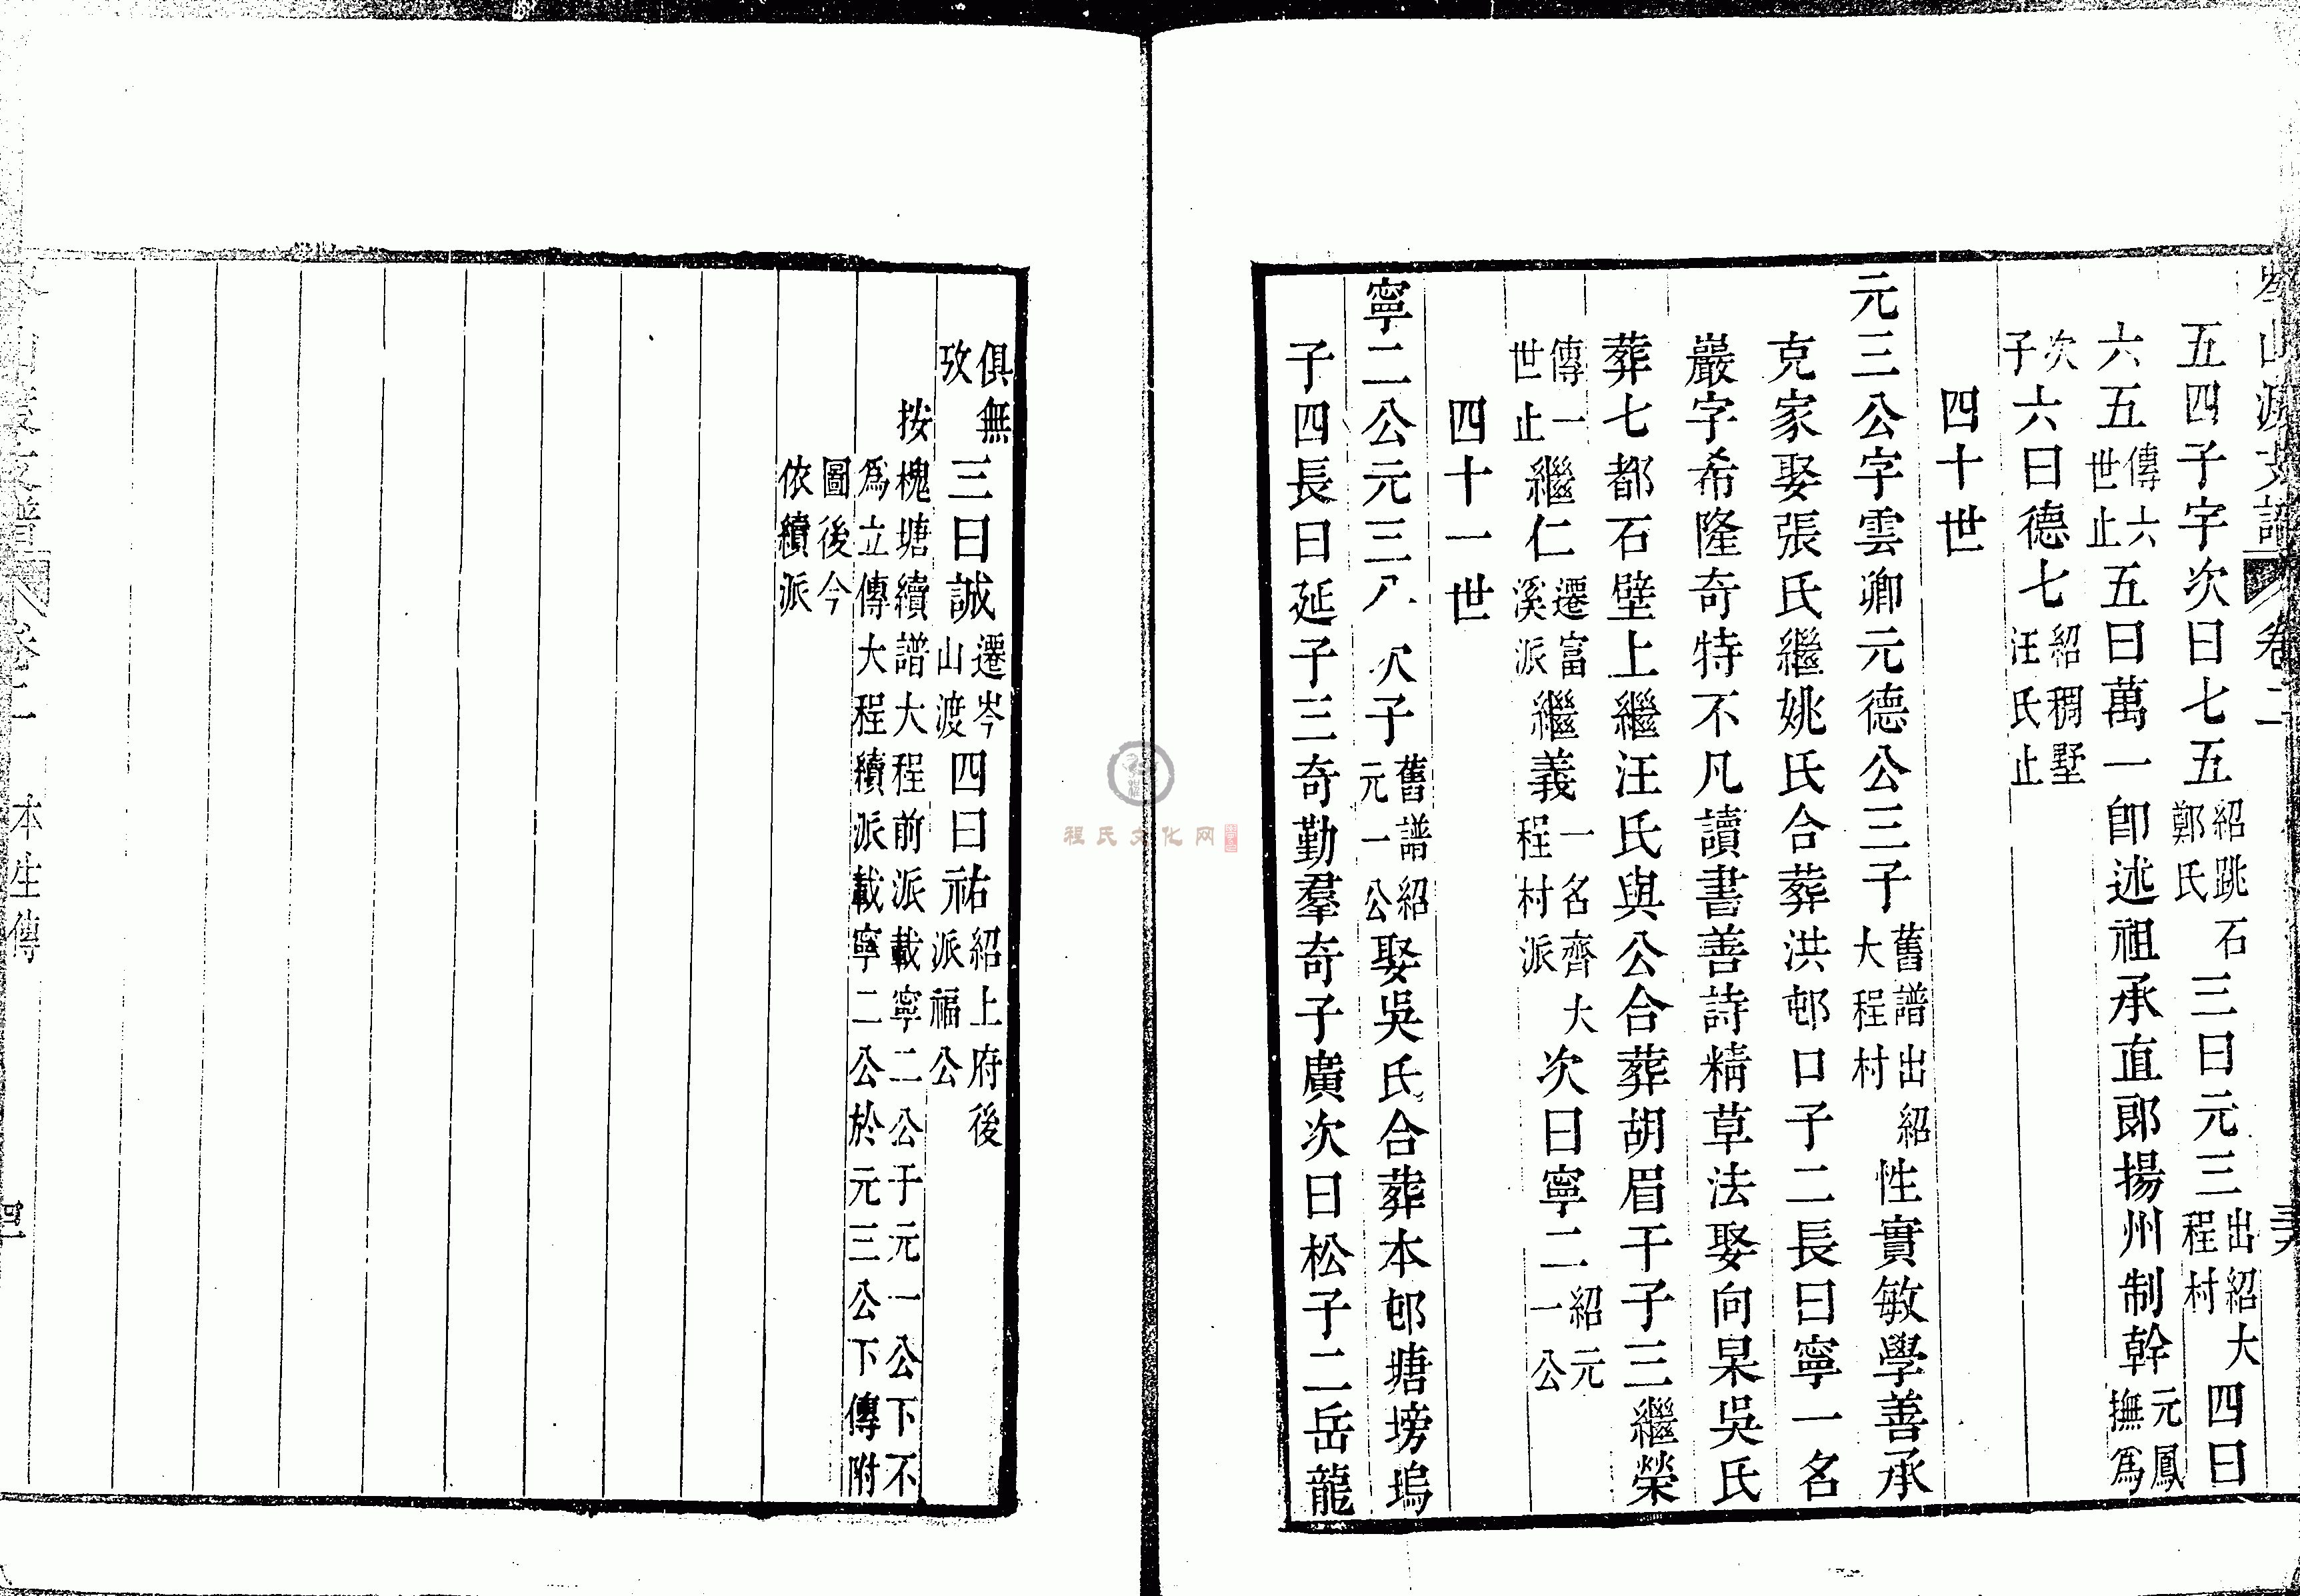 岑山渡支譜 卷二
五四子字次曰七五紹跳石鄭氏三曰元三出紹大程村四曰
六五傳六世止五曰萬一卽述祖承直郞揚州制幹元鳳撫爲
次子六曰德七紹稠墅汪氏止
四十世
元三公字雲卿元德公三子舊譜出紹大程村性實敏學善承
克家娶張氏繼姚氏合葬洪邨口子二長曰寧一名
巖字希隆奇特不凡讀書善詩精草法娶向杲吳氏
葬七都石壁上繼汪氏與公合葬胡眉干子三繼榮
傳一世止繼仁遷富溪派繼義一名齊大程村派次曰寧二紹元一公
四十一世
寧二公元三公次子舊譜紹元一公娶吳氏合葬本邨塘塝塢
子四長曰延子三奇勤羣奇子廣次曰松子二岳龍
俱無攷三曰誠遷岑山渡四曰祐紹上府後派福公
按槐塘續譜大程前派載寧二公于元一公下不
爲立傳大程續派載寧二公於元三公下傳附
圖後今
依續派
卷二 本生傳
程氏文化网